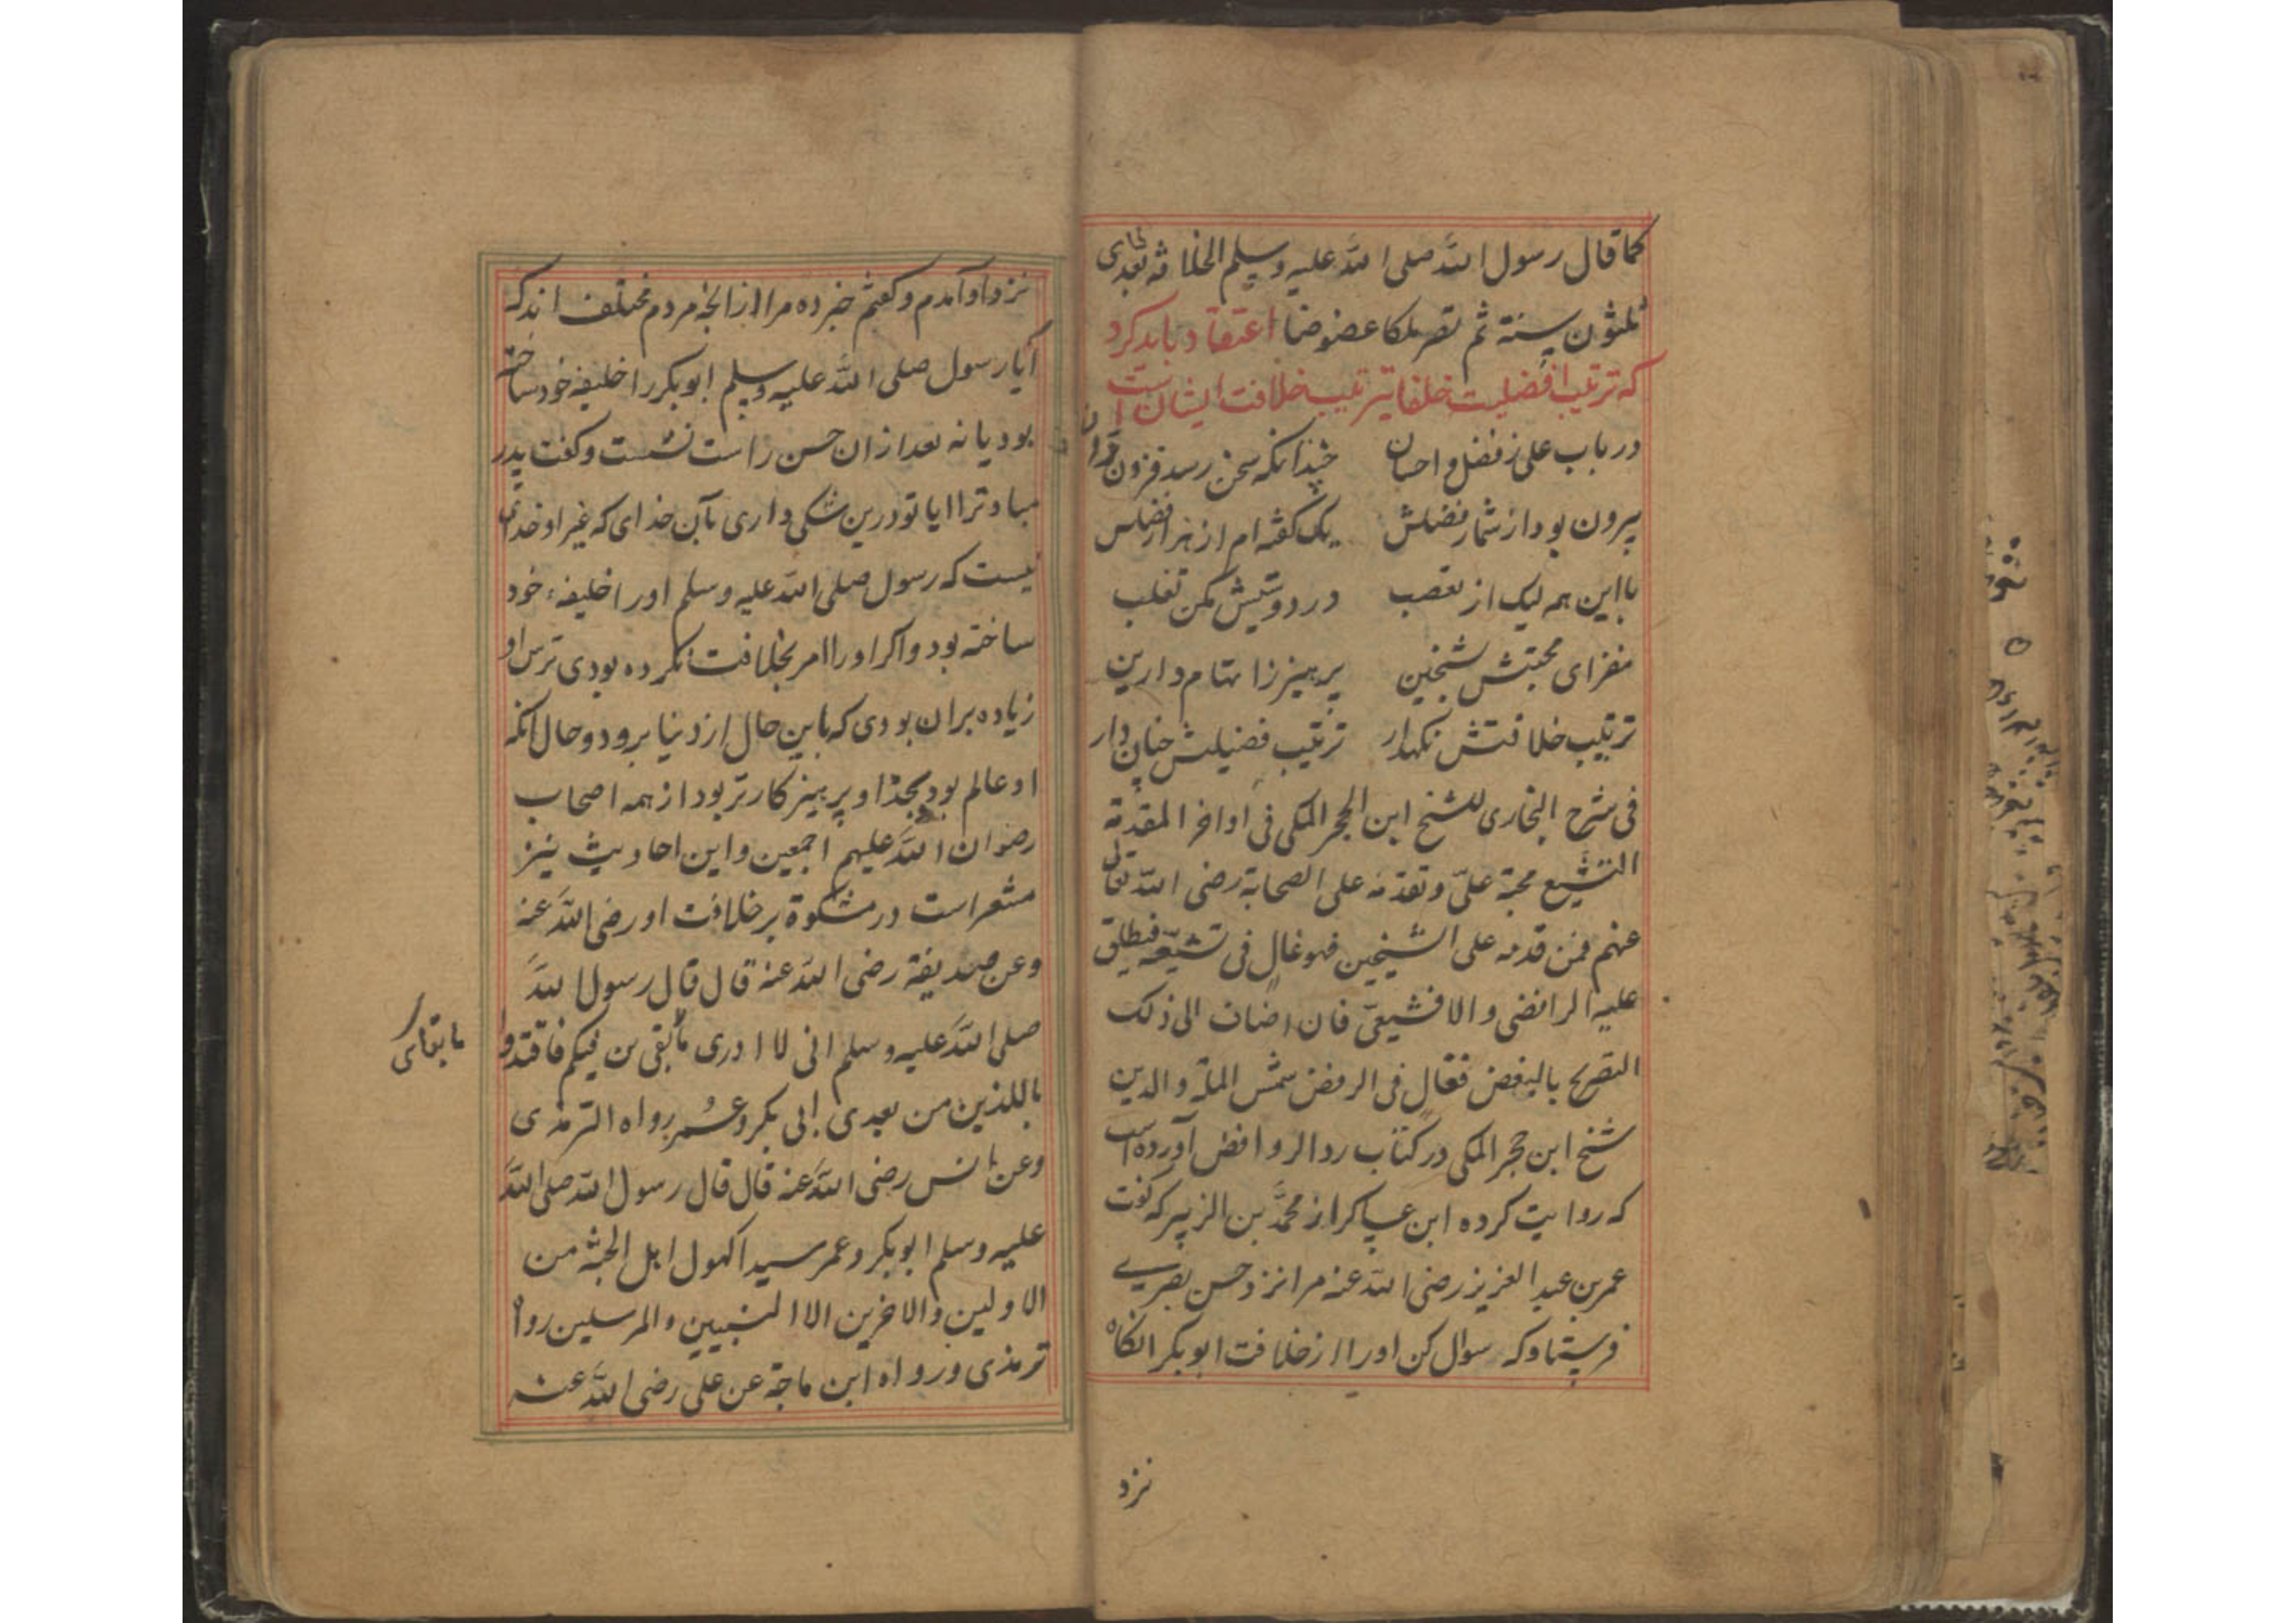 کما قال رسول الله صلی الله علیه وسلم الخلافة بعدی
ثلثون سنة ثم تصیر ملکا عضوضا اعتقاد باید کرد
که ترتیب افضلیت خلفا بترتیب خلافت ایشان است
در باب علی ز فضل و احسان چندانکه سخن رسد فزون دان
بیرون بود از شمار فضلش یک گفته ام از هزار فضلش
با این همه لیک از تعصب در دوستیش مکن تغلب
مفزای محبتش شیخین پرهیز ز اتهام دارین
ترتیب خلافتش نگهدار ترتیب فضیلتش چنان دار
فی شرح البخاری للشیخ ابن الحجر المکی فی اواخر المقدمة
التشیع محبة علیّ وتقدمه علی الصحابة رضی الله تعالی
عنهم فمن قدمه علی الشیخین فهو غال فی تشیعه فیطلق
علیه الرافضی والا فشیعیّ فان اضاف الی ذلک
التصریح بالبغض فغال فی الرفض شمس الملة والدین
شیخ ابن حجر المکی در کتاب رد الروافض آورده است
که روایت کرده ابن عساکر از محمد بن الزبیر که گفت
عمر بن عبد العزیز رضی الله عنه مرا نزد حسن بصری
فرستاد که سوال کن او را از خلافت ابوبکر آنگاه
نزد
نزد او آمدم و گفتم خبر ده مرا از آنچه مردم مختلف اند که
آیا رسول صلی الله علیه وسلم ابوبکر را خلیفه خود ساخته
بود یا نه بعد از ان حسن راست نشست و گفت پدر
مباد ترا ایا تو درین شکی داری بآن خدای که غیر او خدای
نیست که رسول صلی الله علیه وسلم او را خلیفهٔ خود
ساخته بود و اگر او را امر بخلافت نکرده بودی ترس او
زیاده بر ان بودی که باین حال از دنیا برود و حال آنکه
او عالم بود بخدا و پرهیزکارتر بود از همه اصحاب
رضوان الله علیهم اجمعین و این احادیث نیز
مشعر است در مشکوة بر خلافت او رضی الله عنه
وعن حذیفة رضی الله عنه قال قال رسول الله
صلی الله علیه وسلم انی لا ادری ما بقی من فیکم فاقتدوا
ما بقای
باللذین من بعدی ابی بکر وعمر رواه الترمذی
وعن انس رضی الله عنه قال قال رسول الله صلی الله
علیه وسلم ابوبکر وعمر سیدا کهول اهل الجنة من
الاولین والاخرین الا النبیین والمرسلین رواه
ترمذی ورواه ابن ماجة عن علی رضی الله عنه